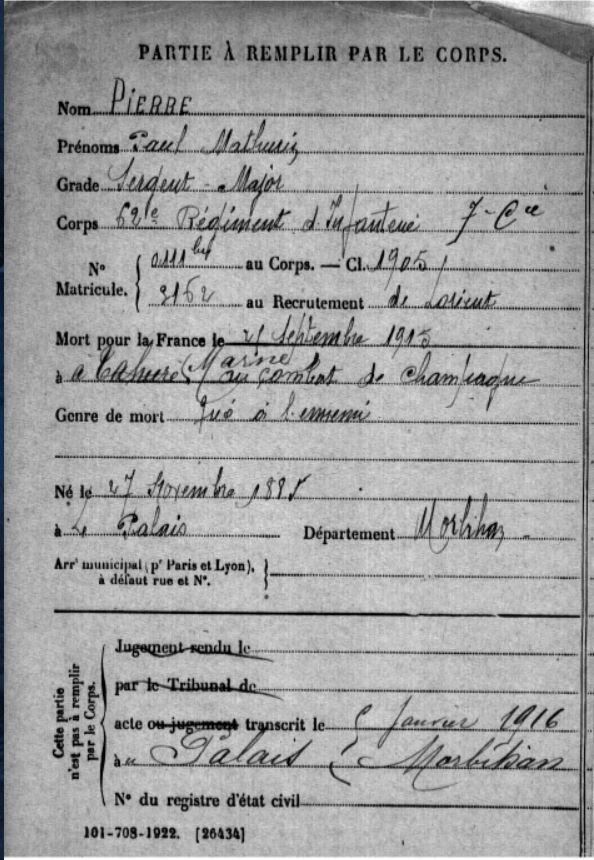 PARTIE À REMPLIR PAR LE CORPS.
Nom PIERRE
Prénoms Paul Mathurin
Grade Sergent-Major
Corps 62e Régiment d'Infanterie 7e Cie
N° Matricule. 0111 bis au Corps. — Cl. 1905
3162 au Recrutement de Lorient
Mort pour la France le Septembre 1915
à à Tahure (Marne) au combat de Champagne
Genre de mort Tué à l'ennemi
Né le 27 Novembre 1885
à Le Palais Département Morbihan
Arrt municipal (pr Paris et Lyon),
à défaut rue et N°.
Cette partie n'est pas à remplir par le Corps.
Jugement rendu le
par le Tribunal de
acte ou jugement transcrit le Janvier 1916
à Palais (Morbihan
N° du registre d'état civil
101-708-1922. [26434]